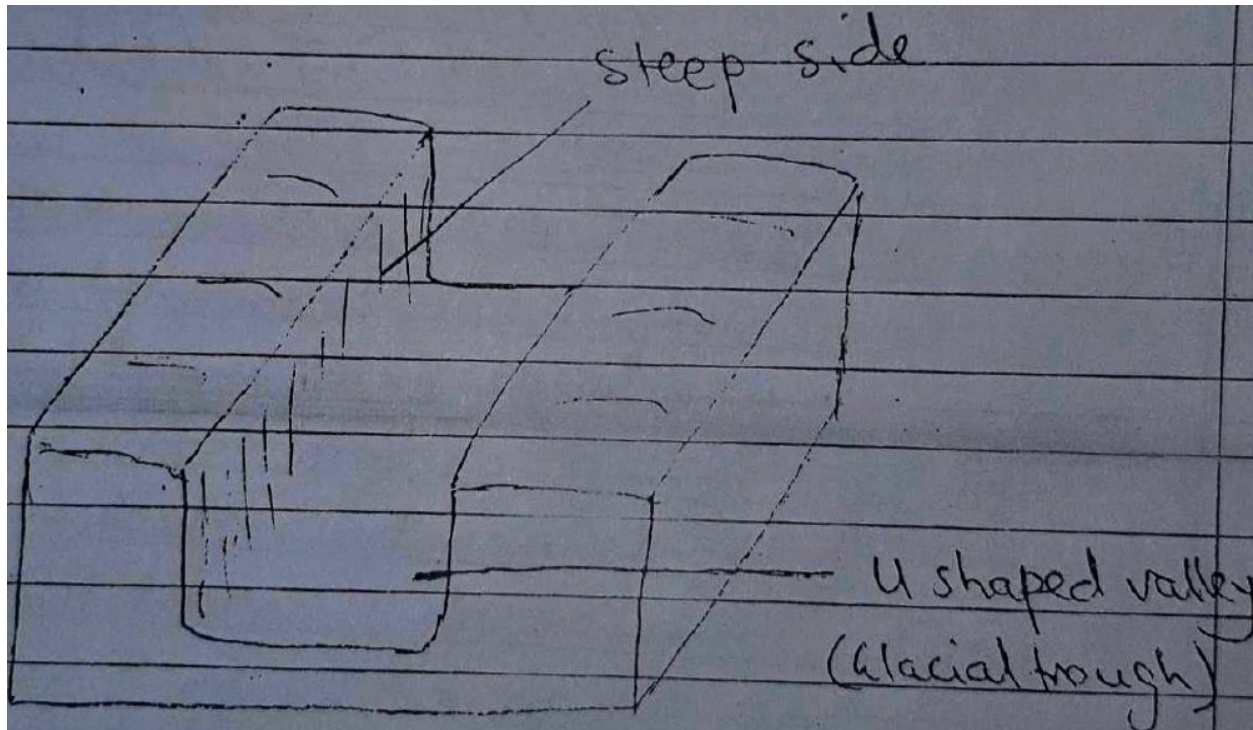 steep side
U shaped valley
(Glacial trough)